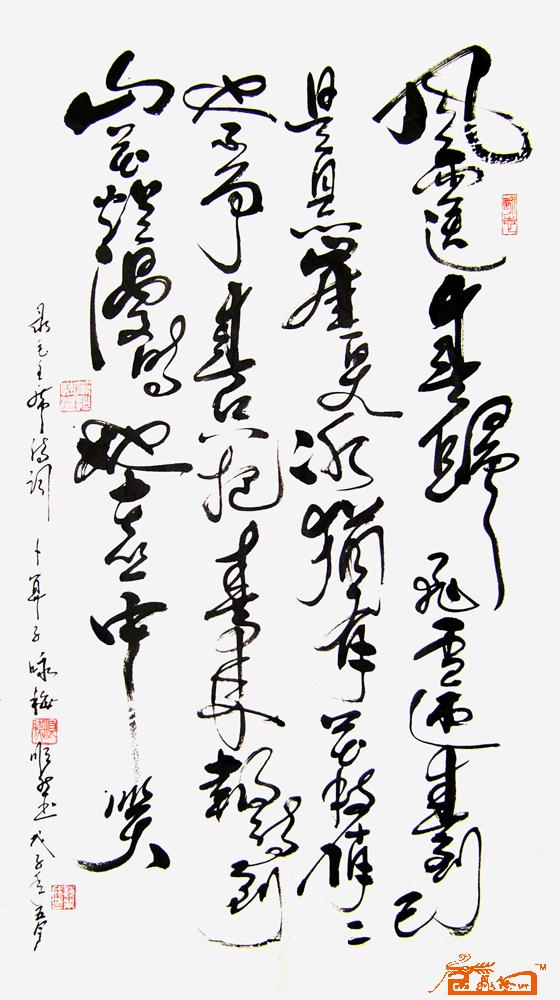 風雨送春歸飛雪迎春到已
是懸崖百丈冰猶有花枝俏二
也不爭春只把春來報待到
山花爛漫時她在丛中笑
录毛主席诗词 卜算子咏梅 戊子